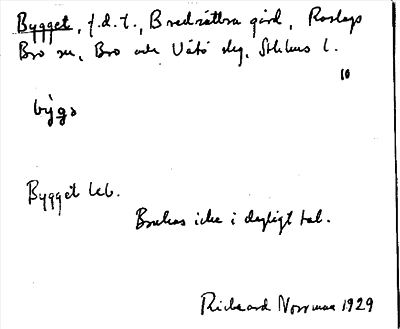 Bygget, f.d.t., Bredsättra gård, Roslags
Bro sn, Bro och Vätö skg, Sthlms l.
10
by̆gə
Bygget kb.
Brukas icke i dagligt tal.
Rickard Norrman 1929